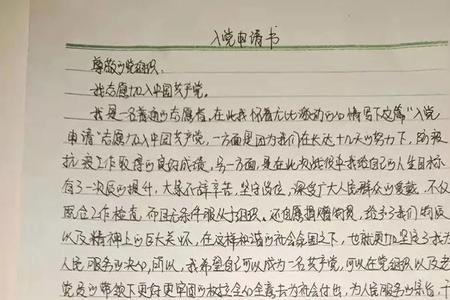 入党申请书
尊敬的党组织:
我志愿加入中国共产党。
我是一名普通的志愿者,在此我怀着无比激动的心情写下这篇“入党
申请”志愿加入中国共产党,一方面是因为我们在长达十九天的努力下,防疫
抗疫工作取得的良好成绩,另一方面,是在此次战役中我给自己的人生目标
有了一次质的提升,大家不辞辛苦,坚守岗位,深受广大人民群众的爱戴,不仅
工作检查,而且无条件服从于组织。还自愿捐赠物资,给予了我们物质
以及精神上的巨大关怀,在这样和谐的社会氛围之下,也就更加坚定了我为
人民服务的决心,所以,我希望自己可以成为一名共产党,可以在党组织以及老
党员的带领下更好更牢固的全心全意去为社会付出,为人民服务的